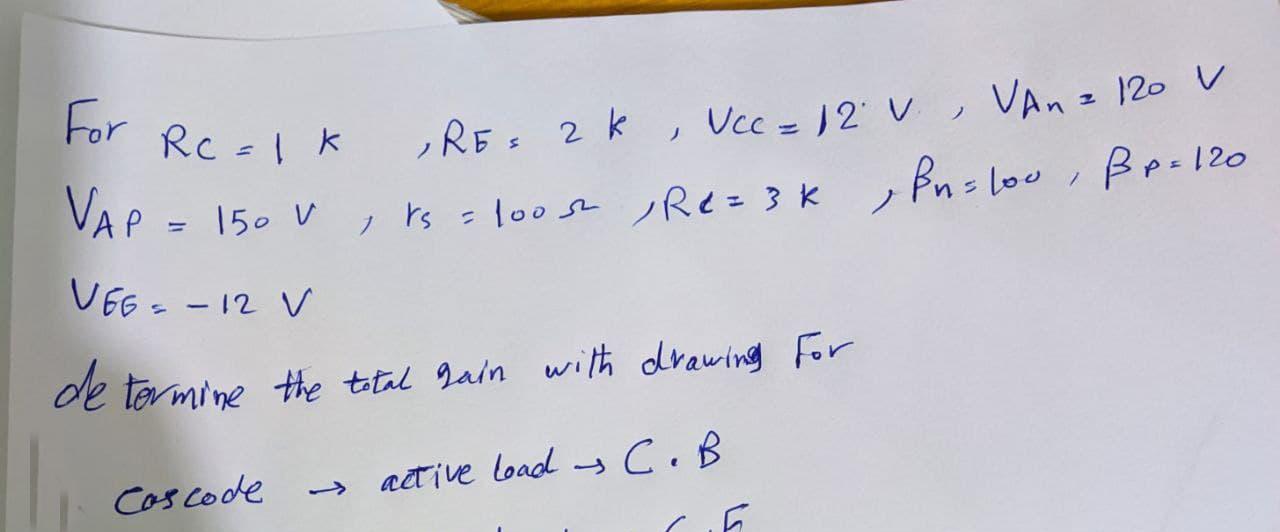 For RC = 1 K , RE = 2 k , Vcc = 12 V , VAn = 120 V
VAP = 150 V , rs = 100 Ω , RL = 3 K , βn = 100 , βP = 120
VEE = - 12 V
determine the total gain with drawing For
Cascode → active load → C.B